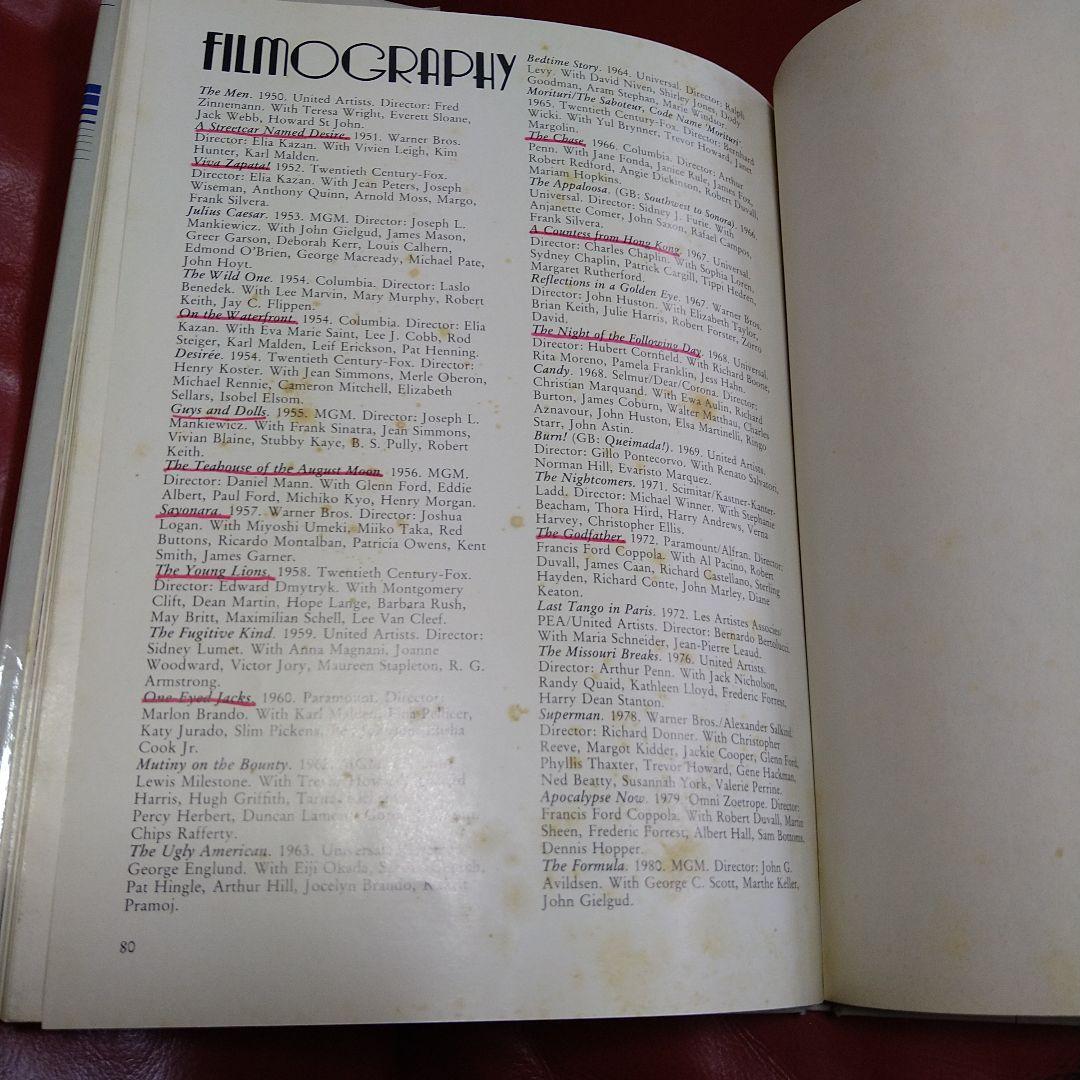 FILMOGRAPHY
The Men. 1950. United Artists. Director: Fred
Zinnemann. With Teresa Wright, Everett Sloane,
Jack Webb, Howard St John.
A Streetcar Named Desire. 1951. Warner Bros.
Director: Elia Kazan. With Vivien Leigh, Kim
Hunter, Karl Malden.
Viva Zapata! 1952. Twentieth Century-Fox.
Director: Elia Kazan. With Jean Peters, Joseph
Wiseman, Anthony Quinn, Arnold Moss, Margo,
Frank Silvera.
Julius Caesar. 1953. MGM. Director: Joseph L.
Mankiewicz. With John Gielgud, James Mason,
Greer Garson, Deborah Kerr, Louis Calhern,
Edmond O'Brien, George Macready, Michael Pate,
John Hoyt.
The Wild One. 1954. Columbia. Director: Laslo
Benedek. With Lee Marvin, Mary Murphy, Robert
Keith, Jay C. Flippen.
On the Waterfront. 1954. Columbia. Director: Elia
Kazan. With Eva Marie Saint, Lee J. Cobb, Rod
Steiger, Karl Malden, Leif Erickson, Pat Henning.
Desirée. 1954. Twentieth Century-Fox. Director:
Henry Koster. With Jean Simmons, Merle Oberon,
Michael Rennie, Cameron Mitchell, Elizabeth
Sellars, Isobel Elsom.
Guys and Dolls. 1955. MGM. Director: Joseph L.
Mankiewicz. With Frank Sinatra, Jean Simmons,
Vivian Blaine, Stubby Kaye, B. S. Pully, Robert
Keith.
The Teahouse of the August Moon. 1956. MGM.
Director: Daniel Mann. With Glenn Ford, Eddie
Albert, Paul Ford, Michiko Kyo, Henry Morgan.
Sayonara. 1957. Warner Bros. Director: Joshua
Logan. With Miyoshi Umeki, Miiko Taka, Red
Buttons, Ricardo Montalban, Patricia Owens, Kent
Smith, James Garner.
The Young Lions. 1958. Twentieth Century-Fox.
Director: Edward Dmytryk. With Montgomery
Clift, Dean Martin, Hope Lange, Barbara Rush,
May Britt, Maximilian Schell, Lee Van Cleef.
The Fugitive Kind. 1959. United Artists. Director:
Sidney Lumet. With Anna Magnani, Joanne
Woodward, Victor Jory, Maureen Stapleton, R. G.
Armstrong.
One-Eyed Jacks. 1960. Paramount. Director:
Marlon Brando. With Karl Malden, Pina Pellicer,
Katy Jurado, Slim Pickens, Elisha
Cook Jr.
Mutiny on the Bounty. MGM.
Lewis Milestone. With Trevor Howard,
Harris, Hugh Griffith,
Percy Herbert, Duncan
Chips Rafferty.
The Ugly American. 1963. Universal.
George Englund. With Eiji Okada,
Pat Hingle, Arthur Hill, Jocelyn Brando,
Pramoj.
80
Bedtime Story. 1964. Universal. Director: Ralph
Levy. With David Niven, Shirley Jones, Dody
Goodman, Aram Stephan, Marie Windsor.
Morituri/The Saboteur, Code Name 'Morituri'
1965. Twentieth Century-Fox. Director: Bernhard
Wicki. With Yul Brynner, Trevor Howard, Janet
Margolin.
The Chase. 1966. Columbia. Director: Arthur
Penn. With Jane Fonda, Janice Rule, James Fox,
Robert Redford, Angie Dickinson, Robert Duvall,
Mariam Hopkins.
The Appaloosa. (GB: Southwest to Sonora). 1966.
Universal. Director: Sidney J. Furie. With
Anjanette Comer, John Saxon, Rafael Campos,
Frank Silvera.
A Countess from Hong Kong. 1967. Universal.
Director: Charles Chaplin. With Sophia Loren,
Sydney Chaplin, Patrick Cargill, Tippi Hedren,
Margaret Rutherford.
Reflections in a Golden Eye. 1967. Warner Bros.
Director: John Huston. With Elizabeth Taylor,
Brian Keith, Julie Harris, Robert Forster, Zorro
David.
The Night of the Following Day. 1968. Universal.
Director: Hubert Cornfield. With Richard Boone,
Rita Moreno, Pamela Franklin, Jess Hahn.
Candy. 1968. Selmur/Dear/Corona. Director:
Christian Marquand. With Ewa Aulin, Richard
Burton, James Coburn, Walter Matthau, Charles
Aznavour, John Huston, Elsa Martinelli, Ringo
Starr, John Astin.
Burn! (GB: Queimada!). 1969. United Artists.
Director: Gillo Pontecorvo. With Renato Salvatori,
Norman Hill, Evaristo Marquez.
The Nightcomers. 1971. Scimitar/Kastner-Kanter-
Ladd. Director: Michael Winner. With Stephanie
Beacham, Thora Hird, Harry Andrews, Verna
Harvey, Christopher Ellis.
The Godfather. 1972. Paramount/Alfran. Director:
Francis Ford Coppola. With Al Pacino, Robert
Duvall, James Caan, Richard Castellano, Sterling
Hayden, Richard Conte, John Marley, Diane
Keaton.
Last Tango in Paris. 1972. Les Artistes Associes/
PEA/United Artists. Director: Bernardo Bertolucci.
With Maria Schneider, Jean-Pierre Leaud.
The Missouri Breaks. 1976. United Artists.
Director: Arthur Penn. With Jack Nicholson,
Randy Quaid, Kathleen Lloyd, Frederic Forrest,
Harry Dean Stanton.
Superman. 1978. Warner Bros./Alexander Salkind.
Director: Richard Donner. With Christopher
Reeve, Margot Kidder, Jackie Cooper, Glenn Ford,
Phyllis Thaxter, Trevor Howard, Gene Hackman,
Ned Beatty, Susannah York, Valerie Perrine.
Apocalypse Now. 1979. Omni Zoetrope. Director:
Francis Ford Coppola. With Robert Duvall, Martin
Sheen, Frederic Forrest, Albert Hall, Sam Bottoms,
Dennis Hopper.
The Formula. 1980. MGM. Director: John G.
Avildsen. With George C. Scott, Marthe Keller,
John Gielgud.